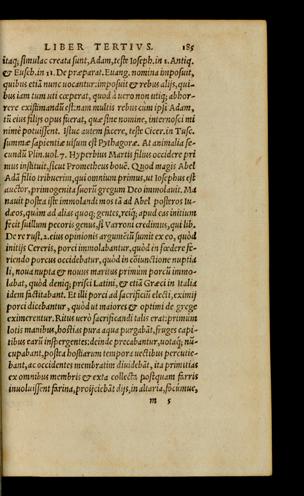 LIBER TERTIVS. 185
itaq; simulac creata sunt, Adam, teste Ioseph. in 1. Antiq.
& Euseb. in 11. De præparat. Euang. nomina imposuit,
quibus etiā nunc uocantur: imposuit & rebus alijs, qui
bus iam tum uti cœperat, quod à uero non utiq; abhor-
rere existimandū est: nam multis rebus cum ipsi Adam,
tū eius filijs opus fuerat, quæ sine nomine, internosci mi
nimè potuissent. Istuc autem facere, teste Cicer. in Tusc.
summæ sapientiæ uisum est Pythagoræ. At animalia se-
cundū Plin. uol. 7. Hyperbius Martis filius occidere pri
mus instituit, sicut Prometheus bouē. Quod magis Abel
Adā filio tribuerim, qui omnium primus, ut Iosephus est
auctor, primogenita suorū gregum Deo immolauit. Ma
nauit postea iste immolandi mos tā ad Abel posteros Iu
dæos, quàm ad alias quoq; gentes, reiq; apud eas initium
fecit suillum pecoris genus, si Varroni credimus, qui lib.
De re rust. 2. eius opinionis argumētū sumit ex eo, quòd
initijs Cereris, porci immolabantur, quòd in fœdere fe-
riendo porcus occidebatur, quòd in cōiunctione nuptia
li, noua nupta & nouus maritus primum porcū immo-
labat, quòd deniq; prisci Latini, & etiā Græci in Italia
idem factitabant. Et illi porci ad sacrificiū electi, eximij
porci dicebantur, quòd ut maiores & optimi de grege
eximerentur. Ritus uerò sacrificandi talis erat: primum
lotis manibus, hostias pura aqua purgabāt, fruges capi-
tibus earū inspergentes: deinde precabantur, uotaq; nū-
cupabant, postea hostiarum tempora uectibus percutie-
bant, ac occidentes membratim diuidebāt, ita primitias
ex omnibus membris & exta collecta postquam farris
inuoluissent farina, proijciebāt dijs, in altaria, focumue,
m 5